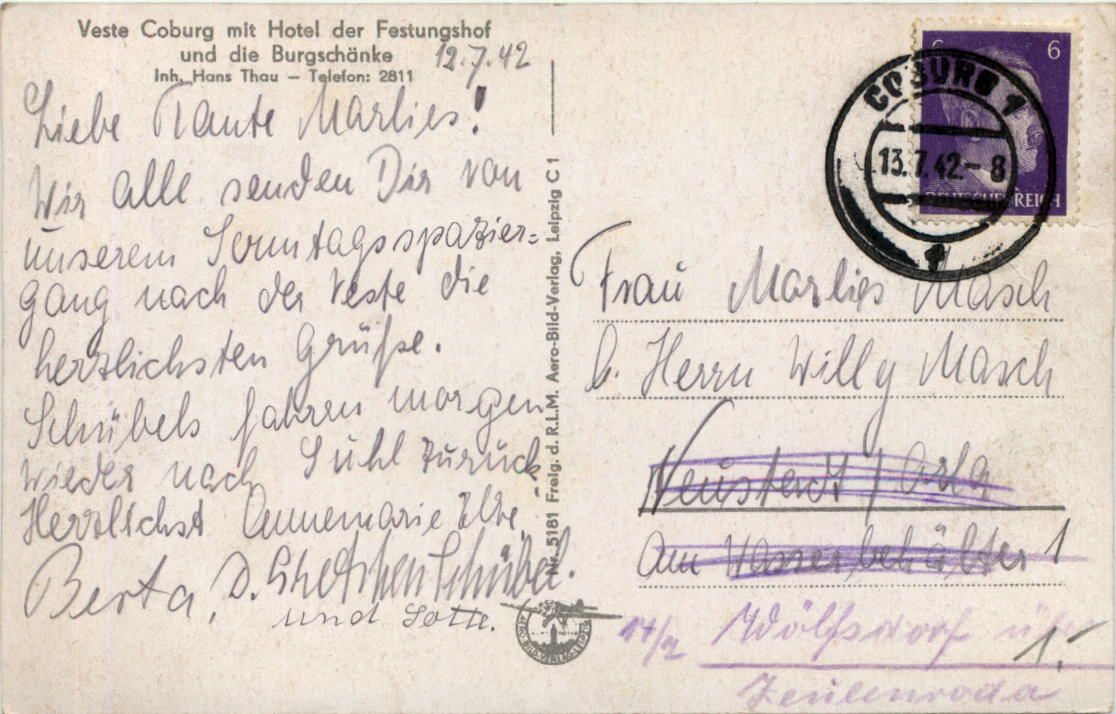 Veste Coburg mit Hotel der Festungshof
und die Burgschänke
Inh. Hans Thau – Telefon: 2811
12.7.42
Liebe Tante Marlies!
Wir alle senden Dir von
unserem Sonntagsspazier=
gang nach der Veste die
herzlichsten Grüße.
Schübels fahren morgen
wieder nach Suhl zurück.
Herzlichst Annemarie
Berta, D. Gretchen Schübel.
und Lotte.
Nr. 5181 Freig. d. R.L.M. Aero-Bild-Verlag, Leipzig C 1
AERO-BILD-VERLAG-LEIPZIG
6 6
DEUTSCHES REICH
COBURG 1
13.7.42.-8
Frau Marlies Masch
b. Herrn Willy Masch
Neustadt / Orla
Am Wasserbehälter 1
14/7 Wölfsdorf über
Zeulenroda
1,-